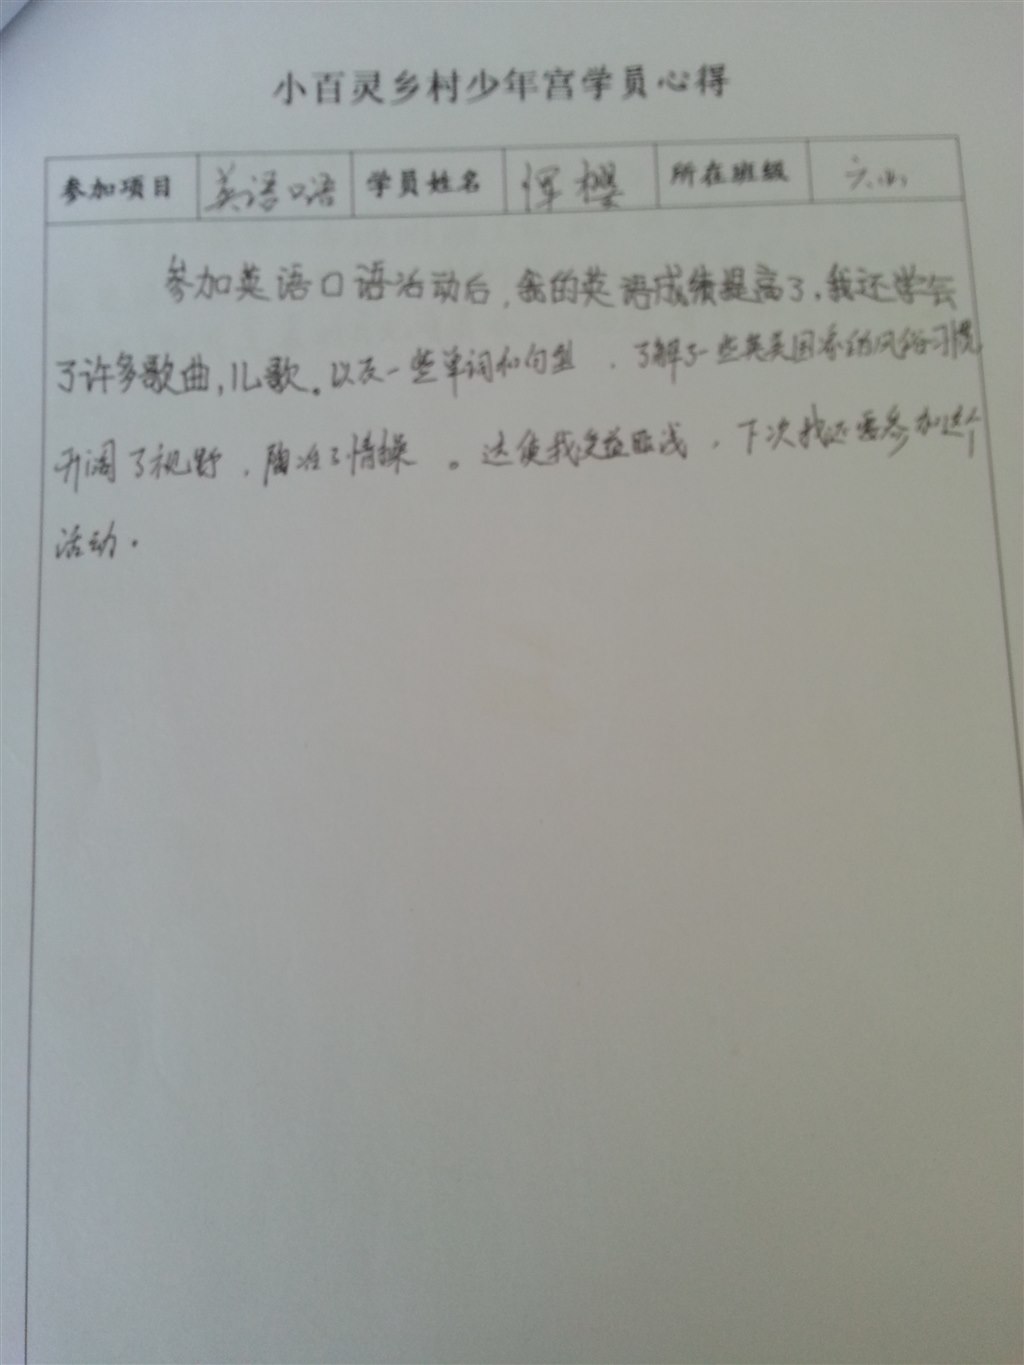 小百灵乡村少年宫学员心得
参加项目 英语口语 学员姓名 恽樱 所在班级 六
参加英语口语活动后,我的英语成绩提高了,我还学会
了许多歌曲,儿歌。以及一些单词和句型,了解了一些英美国家的风俗习惯
开阔了视野,陶冶了情操。这使我受益匪浅,下次我还要参加这个
活动.